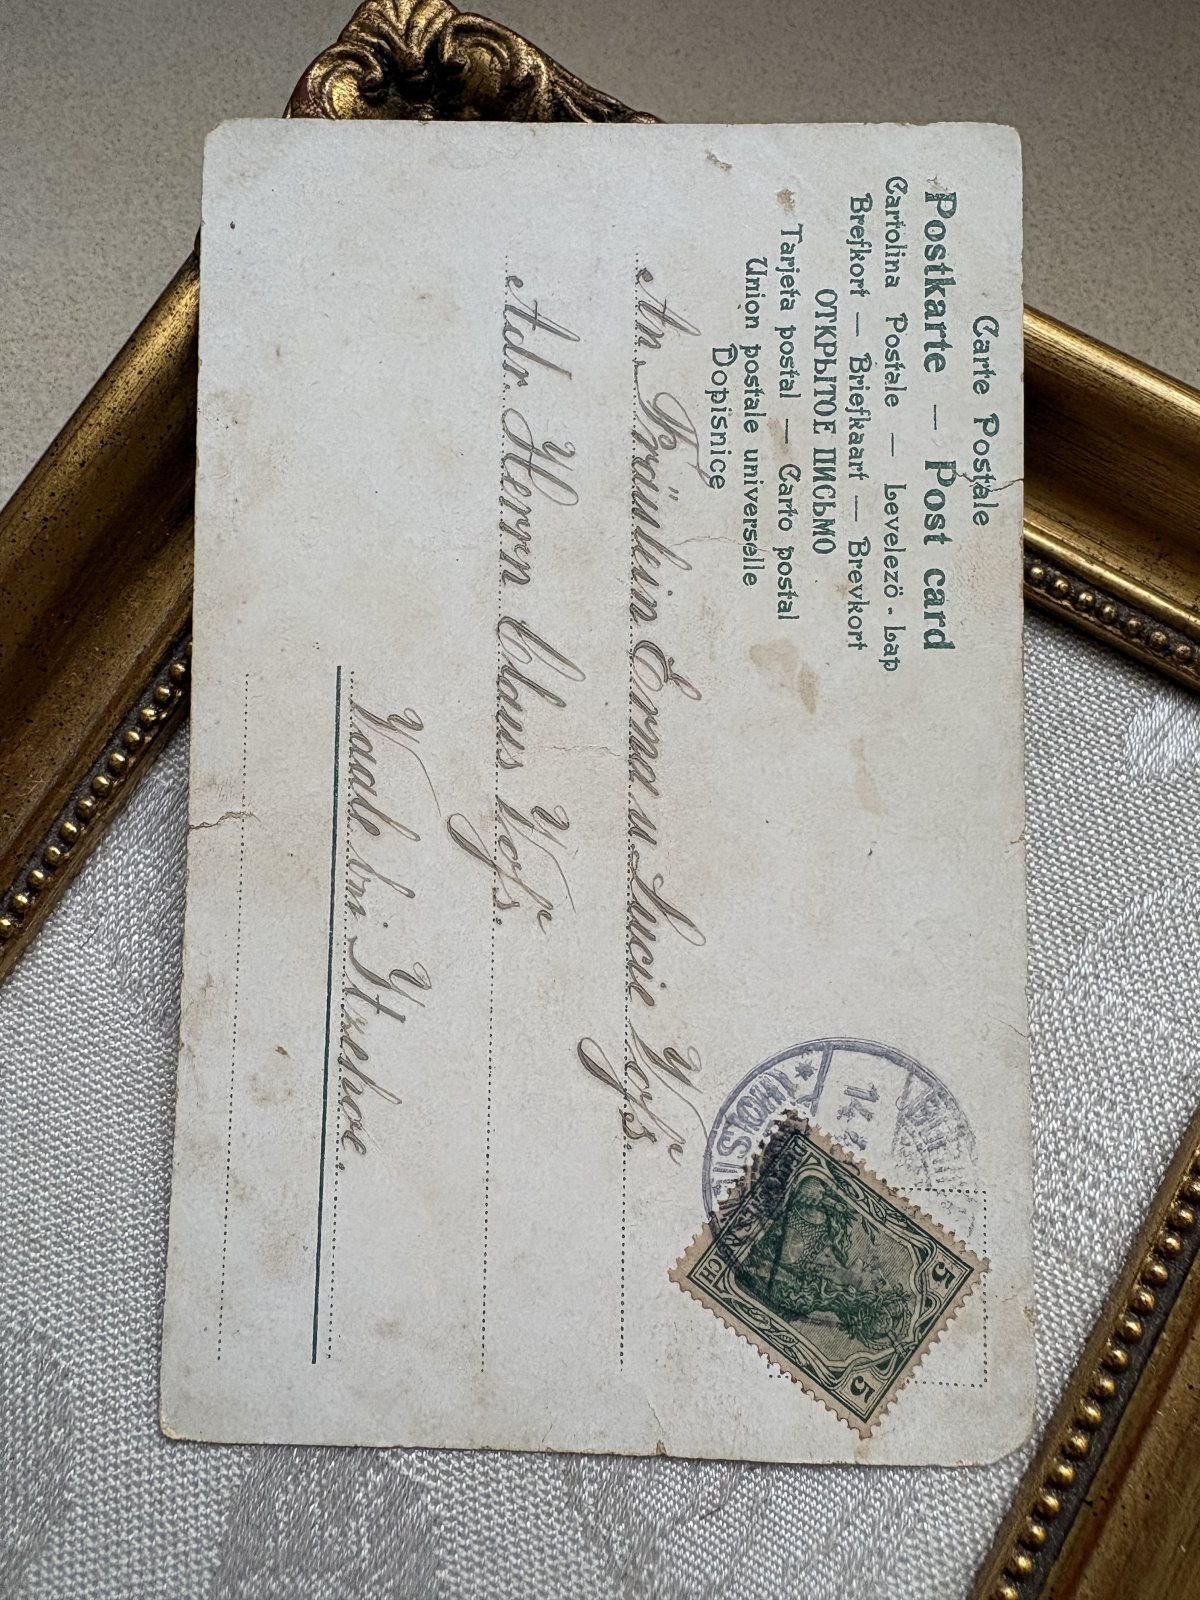 Carte Postale
Postkarte — Post card
Cartolina Postale — Levelezö-Lap
Brefkort — Briefkaart — Brevkort
ОТКРЫТОЕ ПИСЬМО
Tarjeta postal — Carto postal
Union postale universelle
Dopisnice
An Fräulein Erna u Lucie Voß.
Adr. Herrn Claus Voß.
Vaale bei Itzehoe.
14
5 5
CH